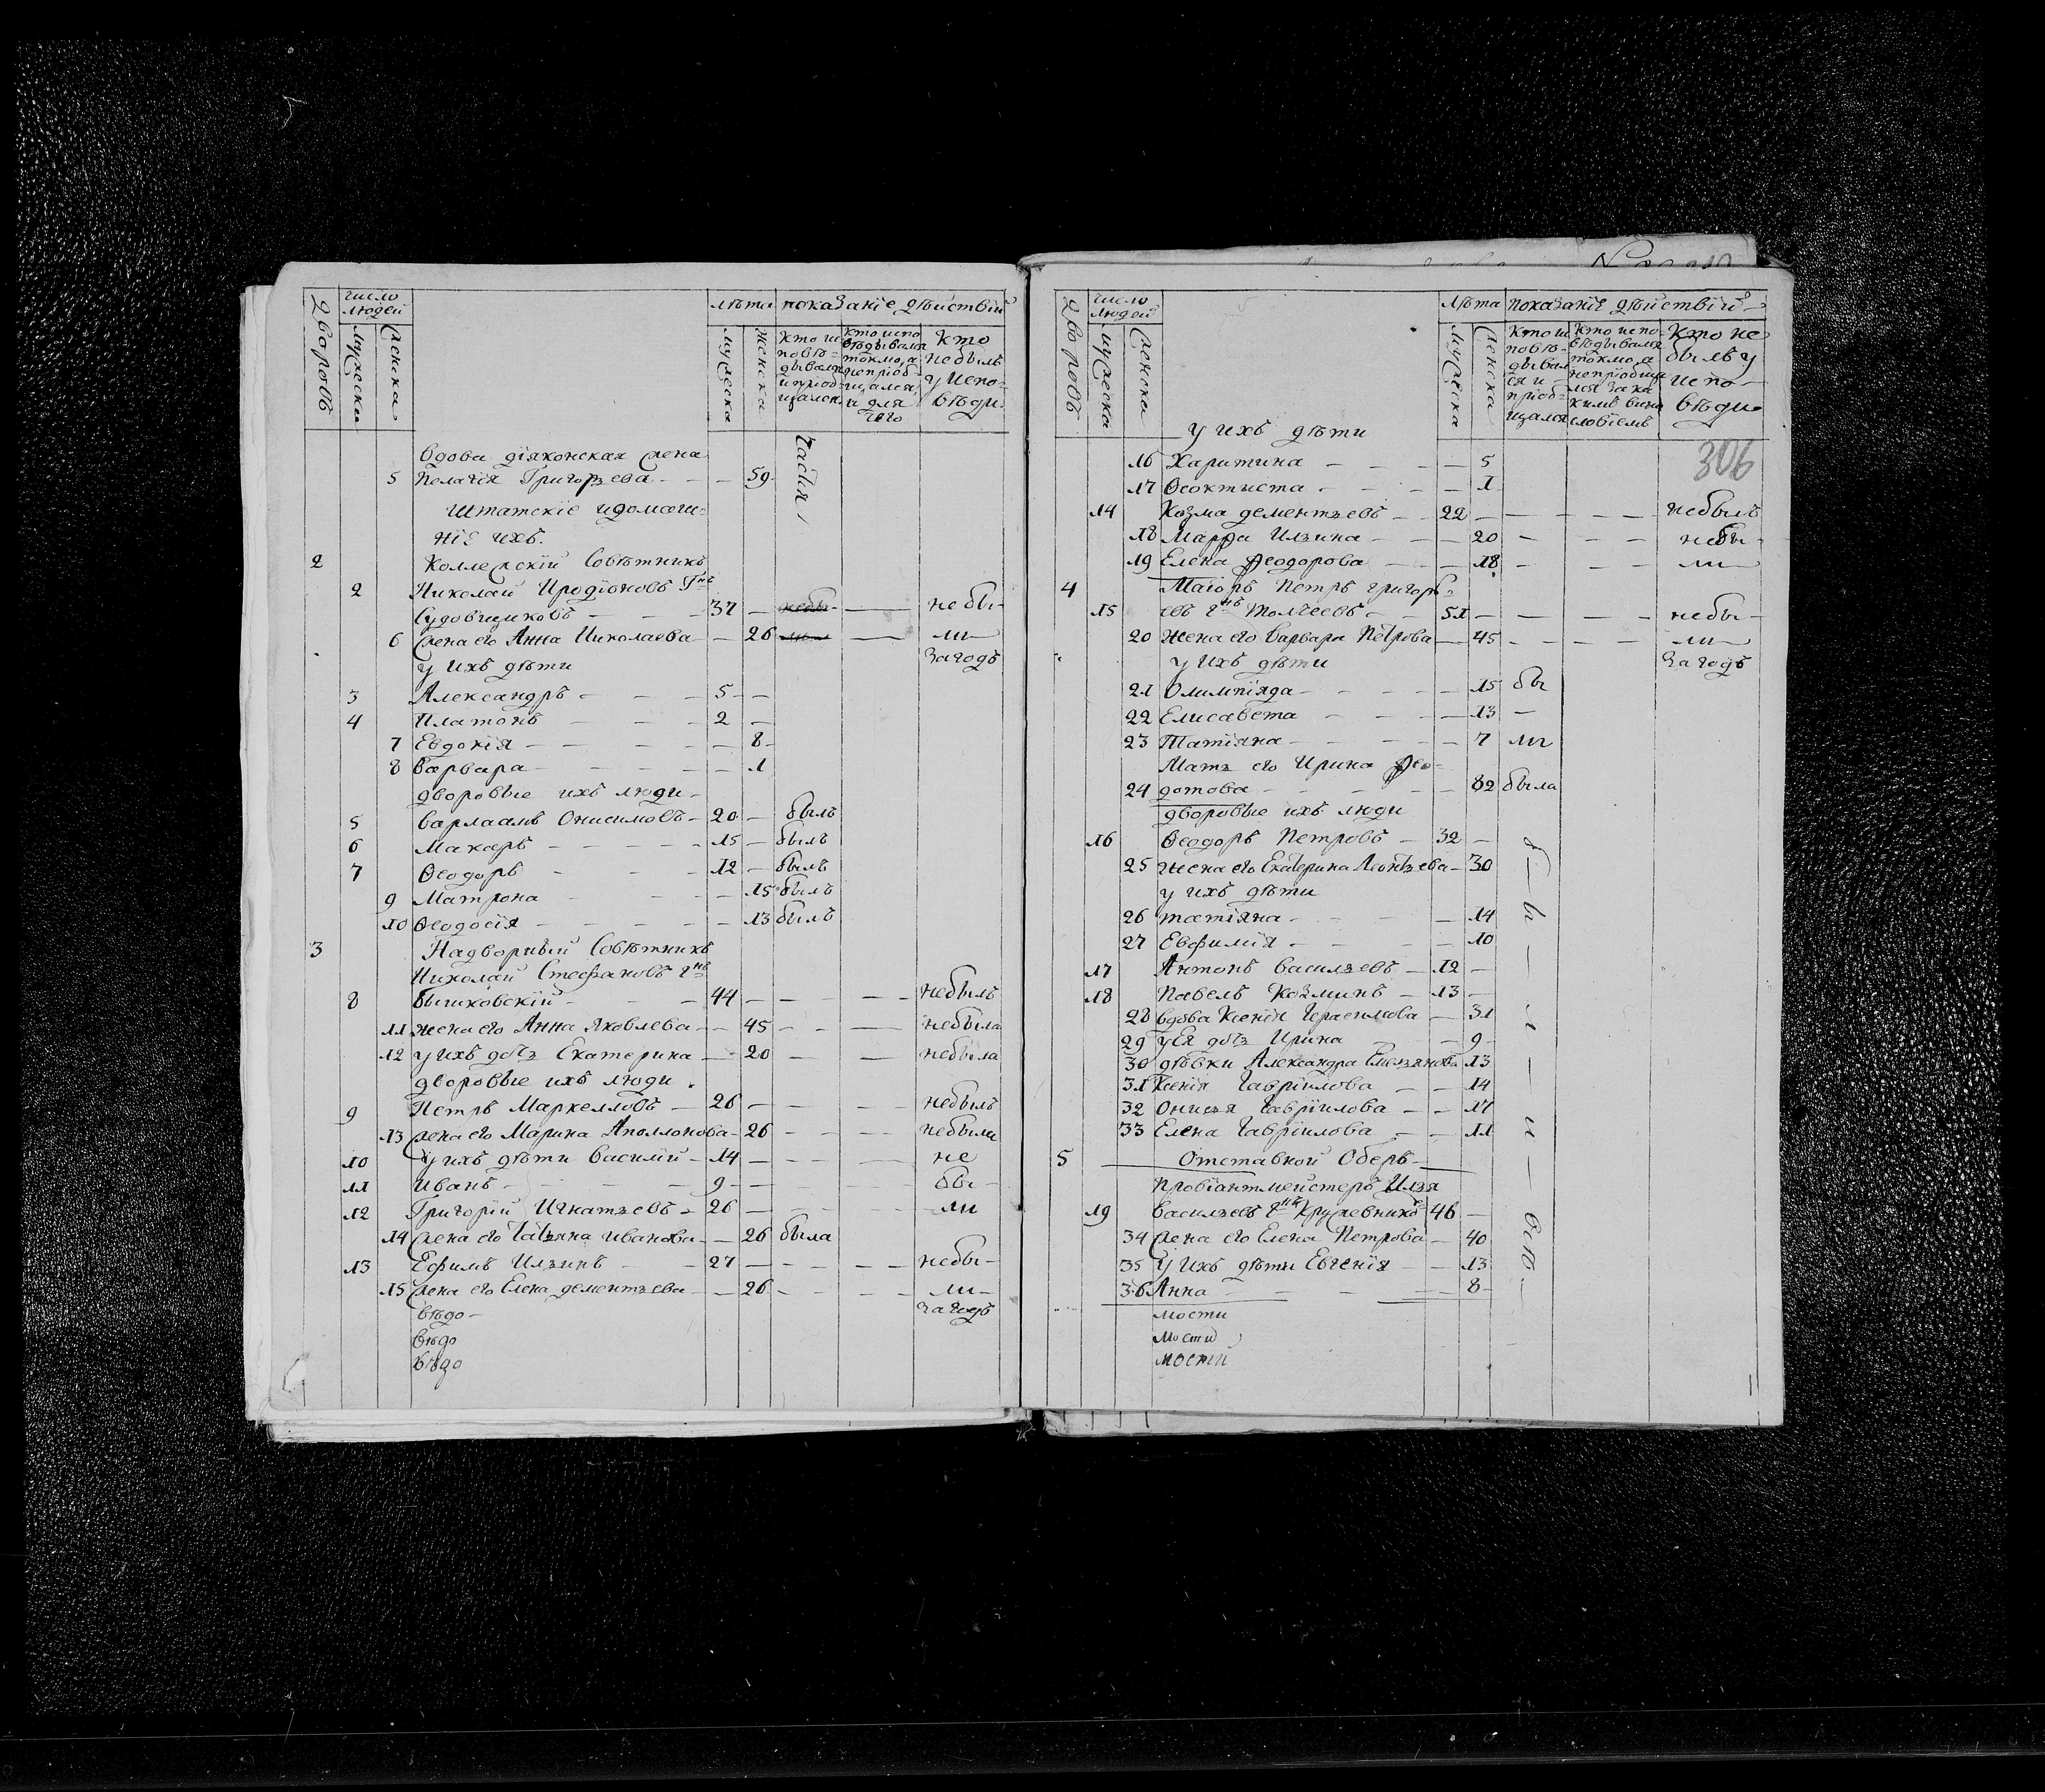 дворовъ
число людей
мужеска
женска
лѣта
показаніе дѣйствій
мужеска
женска
кто не былъ у испо- вѣди
Вдова діяконская жена
5 Пелагія Григорьева - - 59
Штатскіе идомаш-
ніе ихъ.
2 Коллежскій Совѣтникъ
2 Николай Иродіоновъ Гнъ
Судовщиковъ - - 37 - небы - не бы-
6 жена его Анна Николаева - 26 ли
у ихъ дѣти загодъ
3 Александръ - - 5 -
4 Платонъ - - 2 -
7 Евдокія - - - 8
8 Варвара - - - 1
дворовые ихъ люди
5 Варлаамъ Онисимовъ - 20 - былъ
6 Макаръ - - 15 - былъ
7 Ѳеодоръ - - 12 - былъ
9 Матрона - - 15 былъ
10 Ѳеодосія - - 13 былъ
3 Надворный Совѣтникъ
Николай Стефановъ гнъ
8 Бышковскій - - 44 - - - небылъ
11 жена его Анна Яковлева - - 45 - - небыла
12 у ихъ дочь Екатерина - 20 - - небыла
дворовые ихъ люди
9 Петръ Маркелловъ - 26 - - - небылъ
13 жена его Марина Аполлонова - 26 - - - небыла
10 У ихъ дѣти Василій - 14 - - - не
11 Иванъ - - 9 - - бы-
12 Григорій Игнатьевъ - 26 - - - ли
14 жена его Татьяна Иванова - - 26 была
13 Ефимъ Ильинъ - 27 - - - - небы-
15 жена его Елена дементьева - - 26 - - - ли-
вѣдо- загодъ
вѣдо
вѣдо
дворовъ
число людей
мужеска
женска
лѣта
показаніе дѣйствій
мужеска
женска
кто не былъ у испо- вѣди
306
у ихъ дѣти
16 Харитина - - - 5
17 Ѳеоктиста - - - 1
14 Козма дементьевъ - 22 - - - - небылъ
18 Марфа Ильина - - 20 - - - небы-
19 Елена Феодорова - - 18 - - - ли
4 Маіоръ Петръ григорь-
15 евъ гнъ Толчеевъ - 51 - - - - небы-
20 жена его Варвара Петрова - 45 - - - ли
у ихъ дѣти загодъ
21 Олимпіяда - - - 15 бы
22 Елисавета - - - 13 -
23 Татіяна - - - 7 ли
Мать его Ирина Фео-
24 дотова - - - 82 была
дворовые ихъ люди
16 Ѳеодоръ Петровъ - 32 -
25 жена его Екатерина Леонтьева - 30
у ихъ дѣти
26 татіяна - - - 14
27 Евфимія - - - 10
17 Антонъ Васильевъ - 12 -
18 Павелъ Козминъ - 13 -
28 вдова Ксенія Герасимова - 31
29 у ея дочь Ирина - - 9
30 дѣвки Александра Емельянова 13
31 Ксенія Гавріилова - - 14
32 Онисья Гавріилова - - 17
33 Елена Гавріилова - - 11
5 Отставной Оберъ-
провіантмейстеръ Илья
19 Васильевъ гнъ Кружевниковъ 46 -
34 жена его Елена Петрова - 40
35 У ихъ дѣти Евгенія - - 13
36 Анна - - - 8
мости
мости
мости